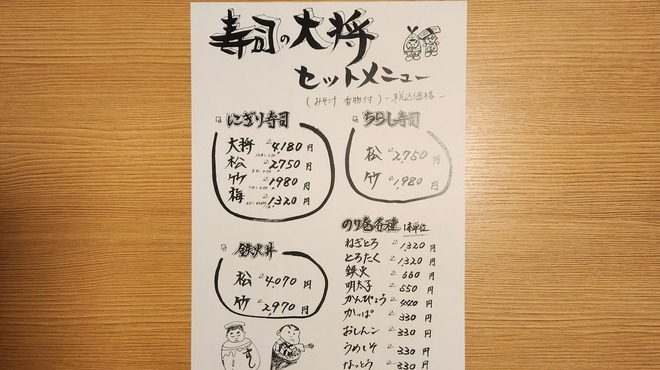 寿司の大将
セットメニュー
(みそ汁 香物付) -税込価格-
にぎり寿司
大将 4,180円
松 2,750円
竹 1,980円
梅 1,320円
ちらし寿司
松 2,750円
竹 1,980円
鉄火丼
松 4,070円
竹 2,970円
のり巻各種 1本単位
ねぎとろ 1,320円
とろたく 1,320円
鉄火 660円
明太子 550円
かんぴょう 440円
かっぱ 330円
おしんこ 330円
うめしそ 330円
なっとう 330円